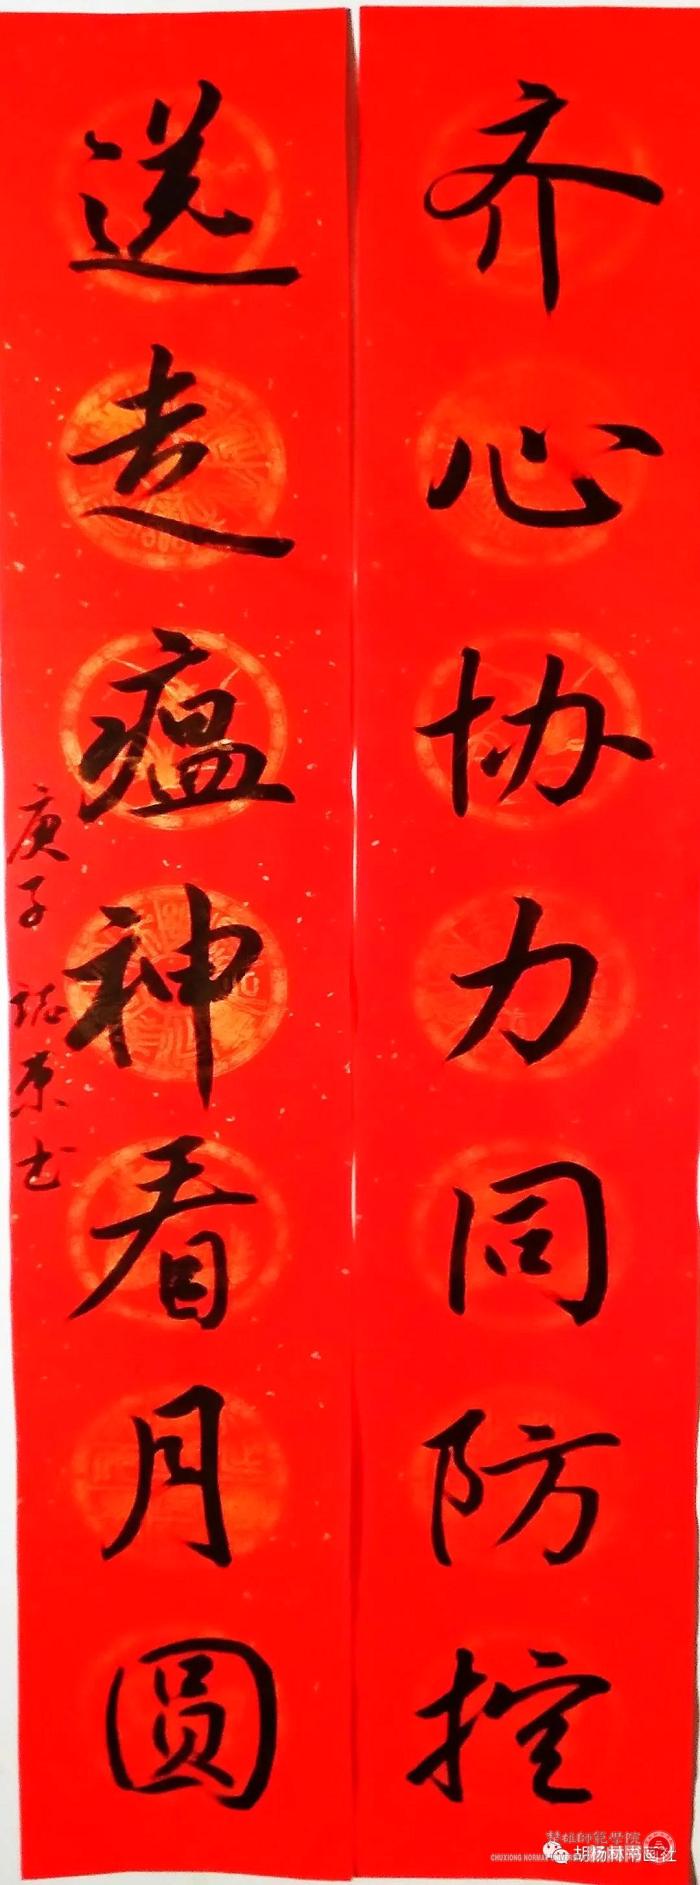 齐心协力同防控
送走瘟神看月圆
庚子
书
楚雄師範學院
CHUXIONG NORMAL UNIVERSITY
胡杨林书画社